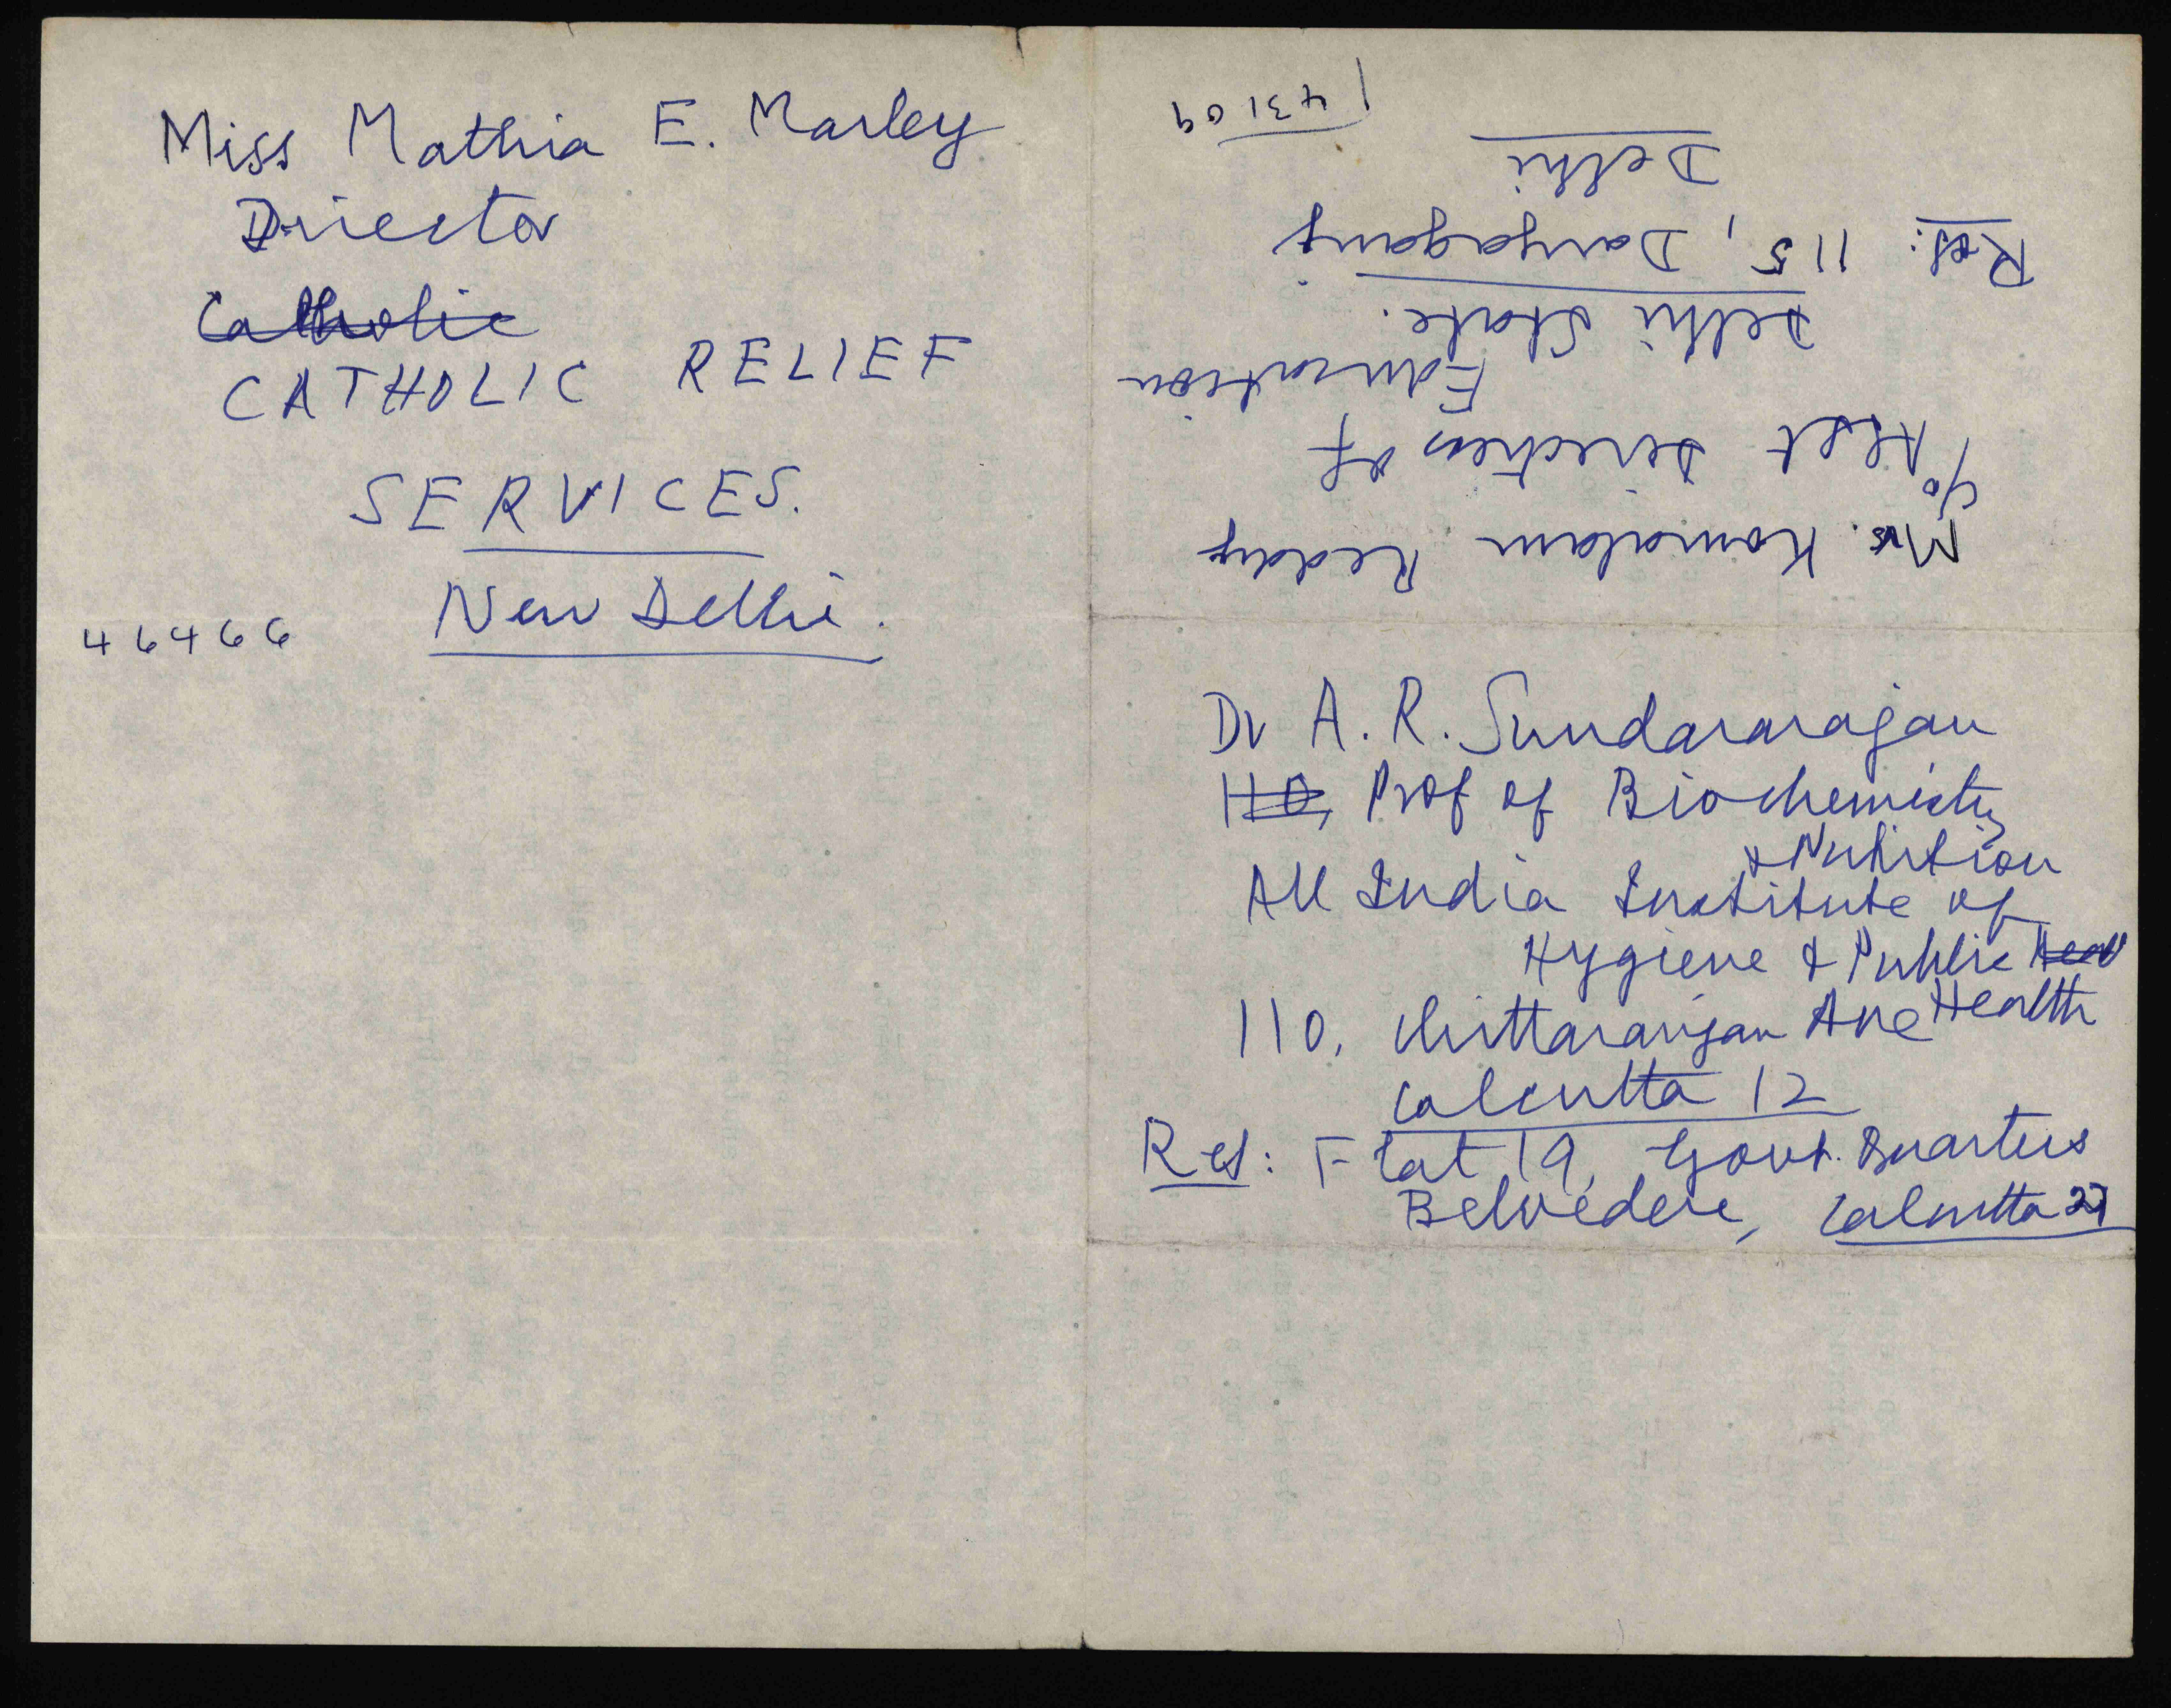 Miss Mathia E. Marley
Director
Catholic
CATHOLIC RELIEF
SERVICES.
New Delhi.
46466
Mrs. Kamalam Reddy
c/o Asst Director of
Education
Delhi State.
Res: 115, Daryaganj
Delhi
43109
Dr A. R. Sundararajan
110, Prof of Biochemistry
& Nutrition
All India Institute of
Hygiene & Public Heal
Health
110, Chittaranjan Ave
Calcutta 12
Res: Flat 19, Govt. Quarters
Belvedere, Calcutta 27